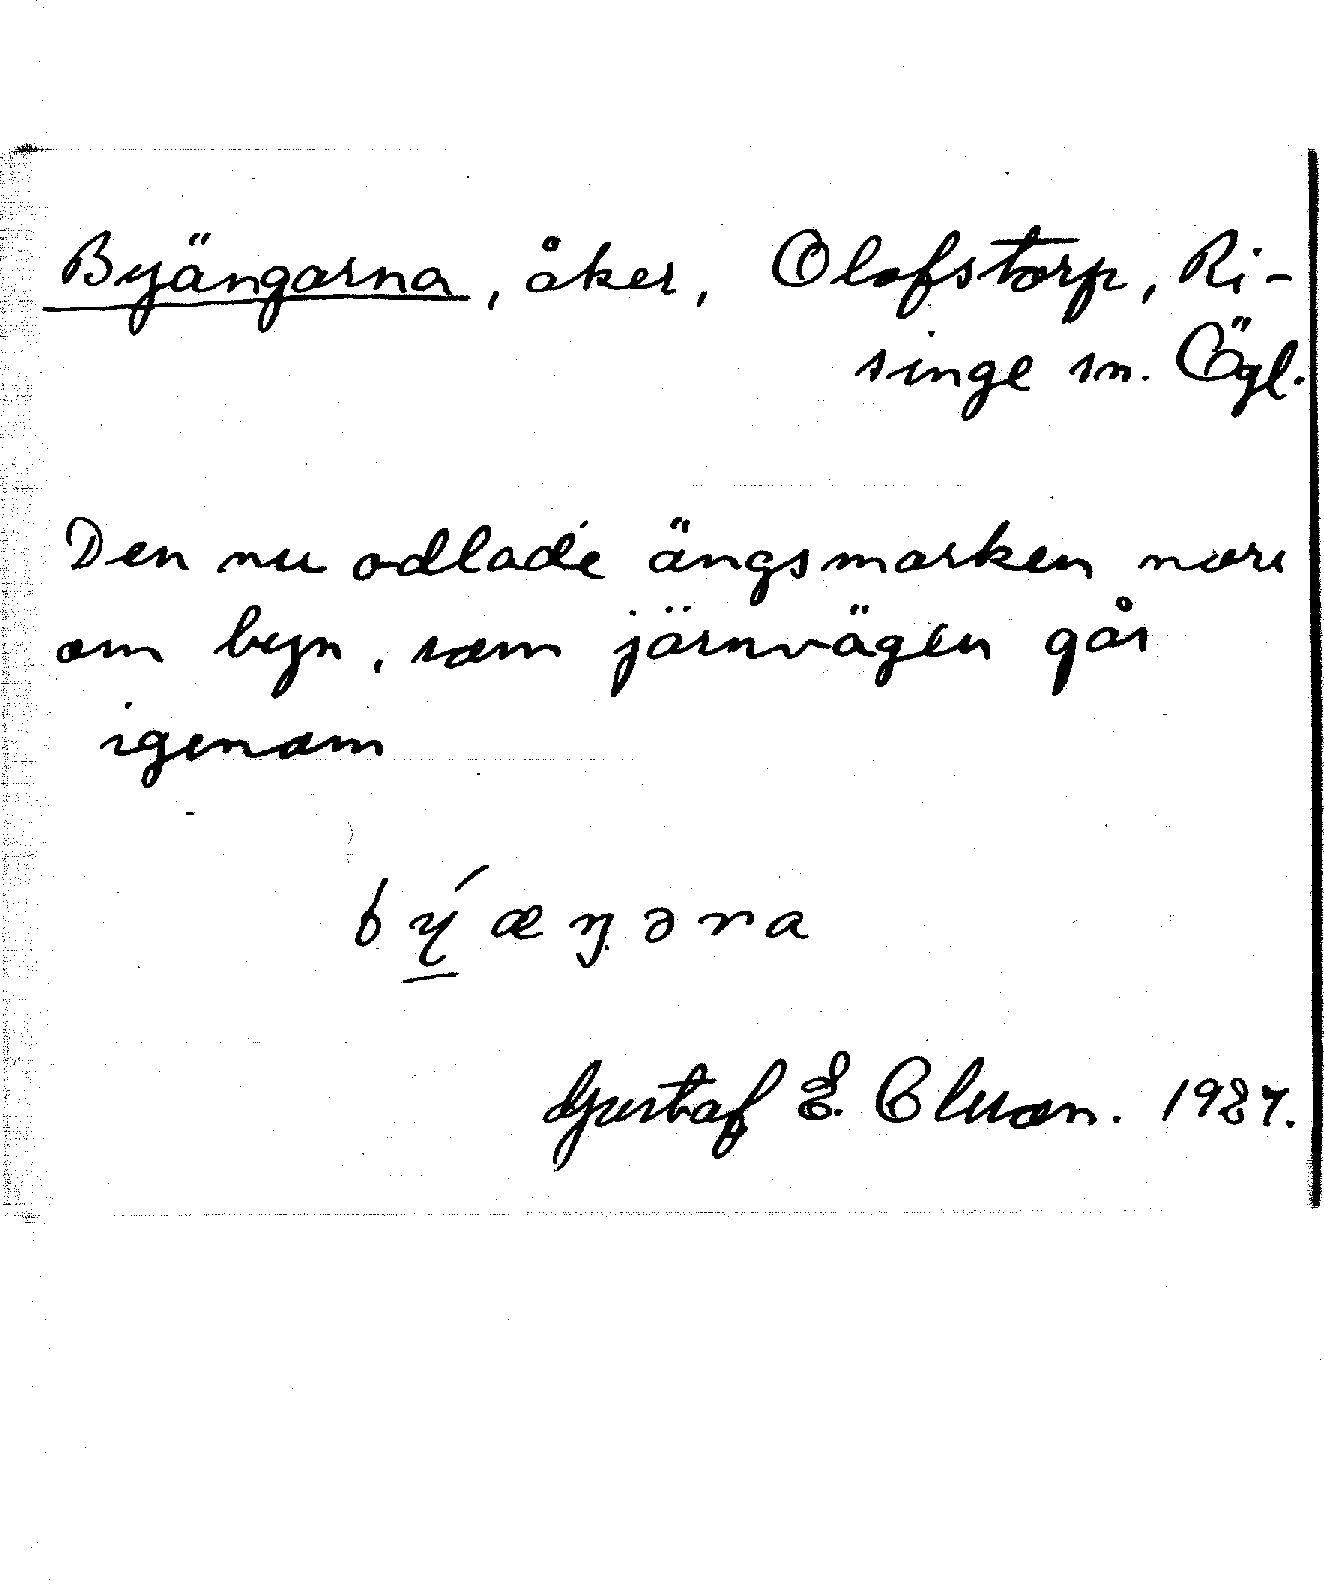 Byängarna, åker, Olofstorp, Ri-
singe sn. Ögl.
Den nu odlade ängsmarken norr
om byn, som järnvägen går
igenom
bý̲æŋəra
Gustaf E. Clson. 1927.